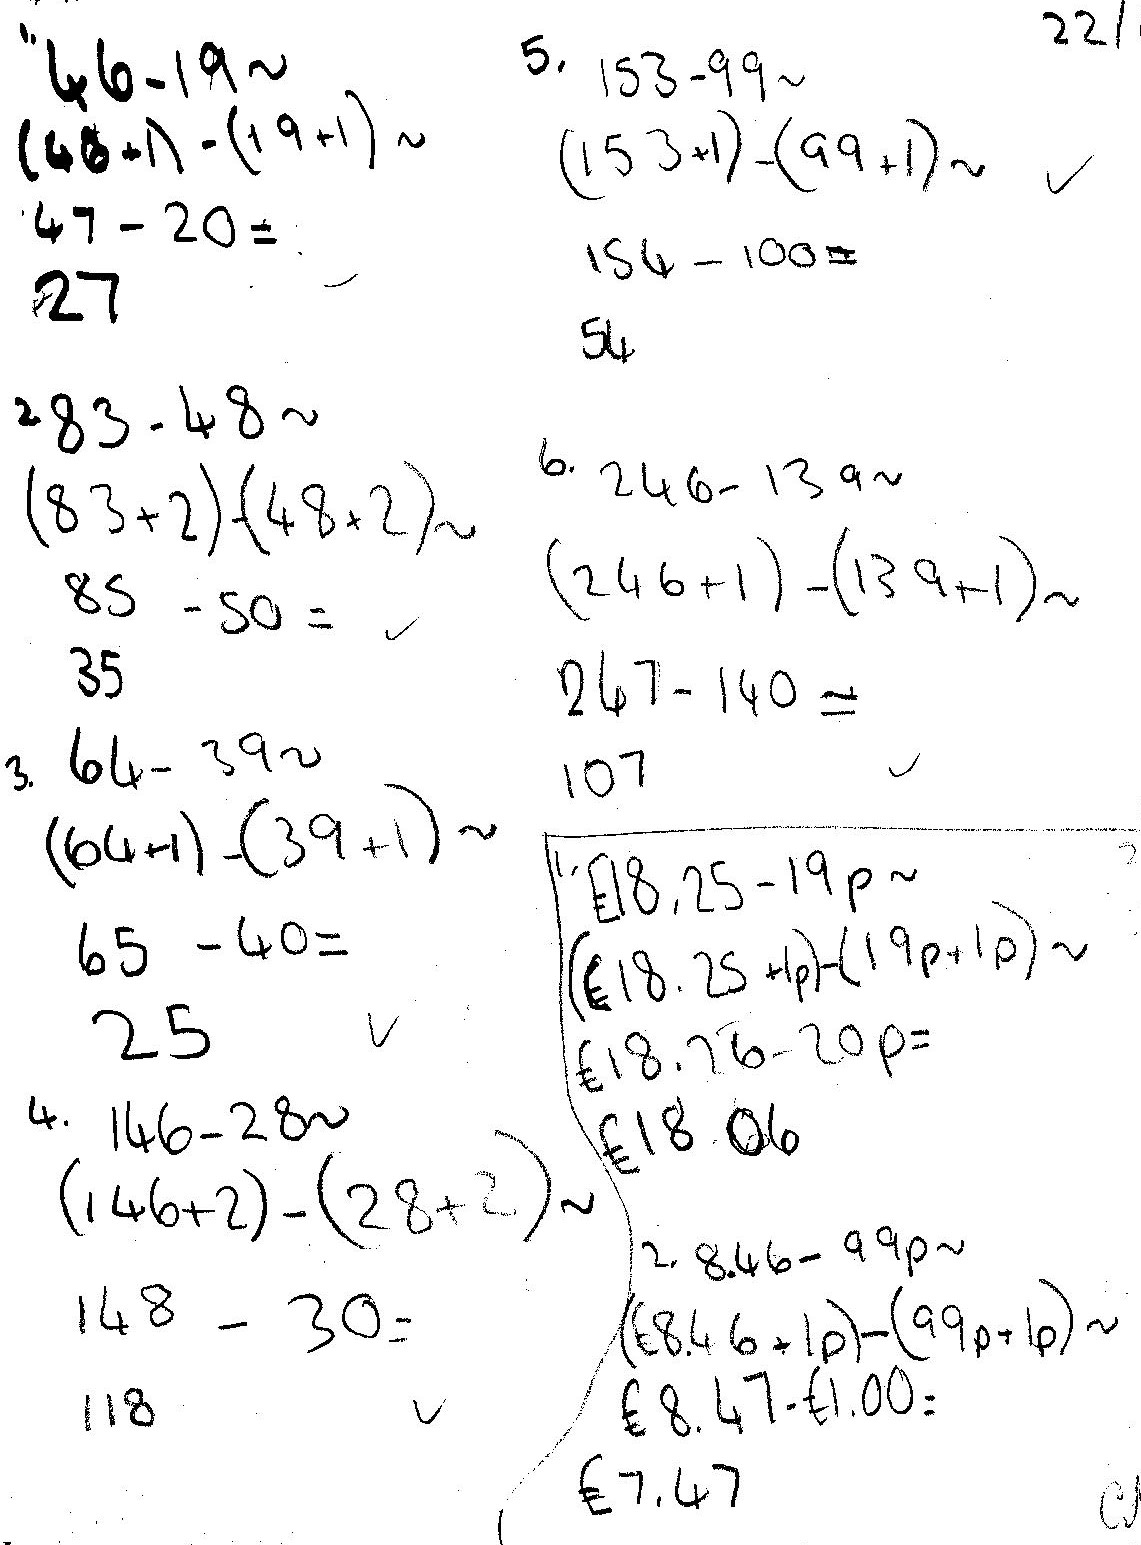 22/
1. 46-19~
(46+1)-(19+1)~
47-20=
27
2. 83-48~
(83+2)-(48+2)~
85 -50=
35
3. 64-39~
(64+1)-(39+1)~
65 -40=
25
4. 146-28~
(146+2)-(28+2)~
148 - 30=
118
5. 153-99~
(153+1)-(99+1)~
154-100=
54
6. 246-139~
(246+1)-(139+1)~
247-140=
107
1. £18.25-19p~
(£18.25+1p)-(19p+1p)~
£18.26-20p=
£18.06
2. 8.46-99p~
(£8.46+1p)-(99p+1p)~
£8.47-£1.00=
£7.47